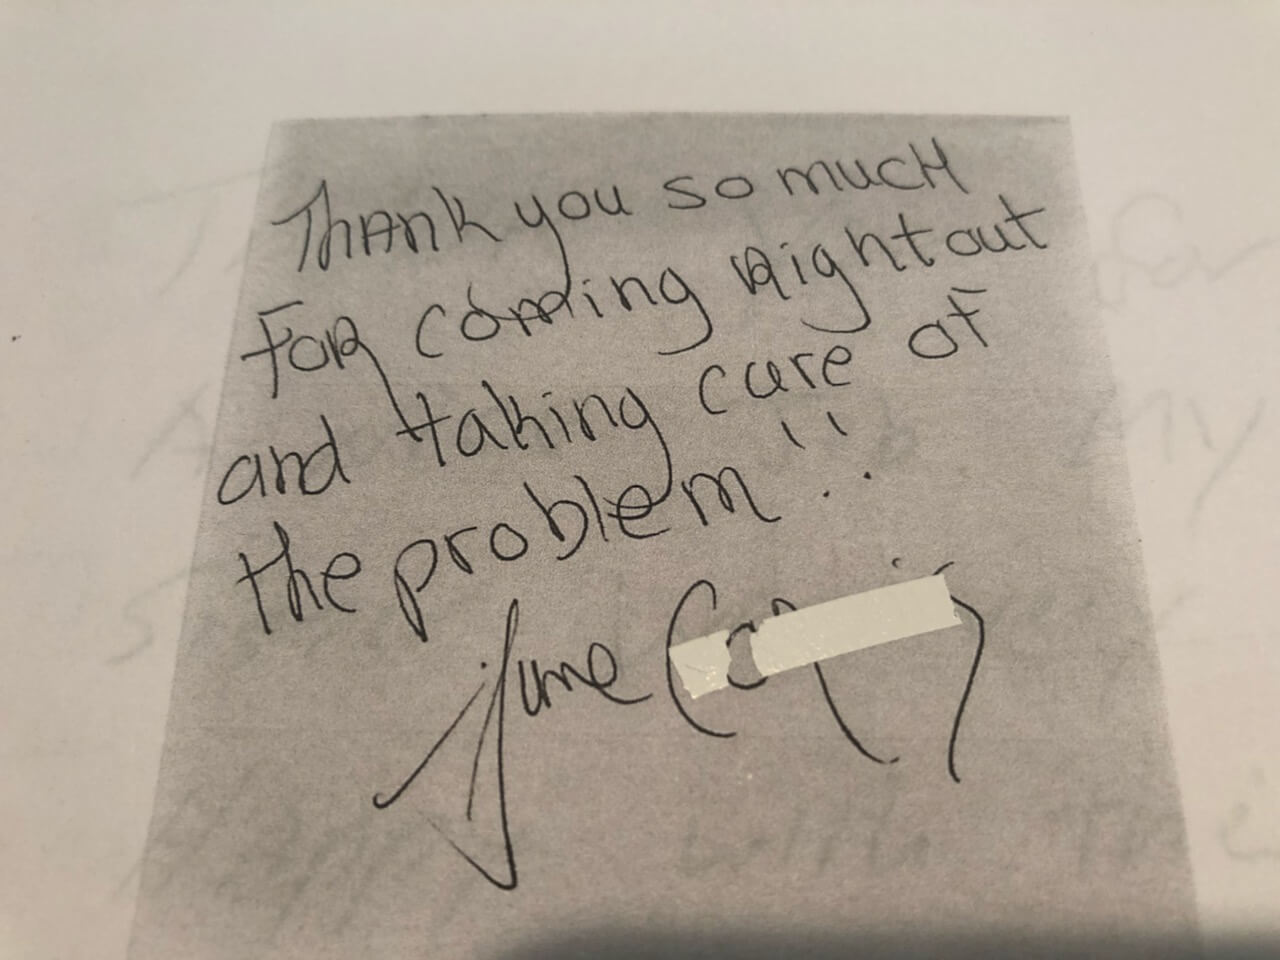 Thank you so much
For coming right out
and taking care of
the problem!!
June (